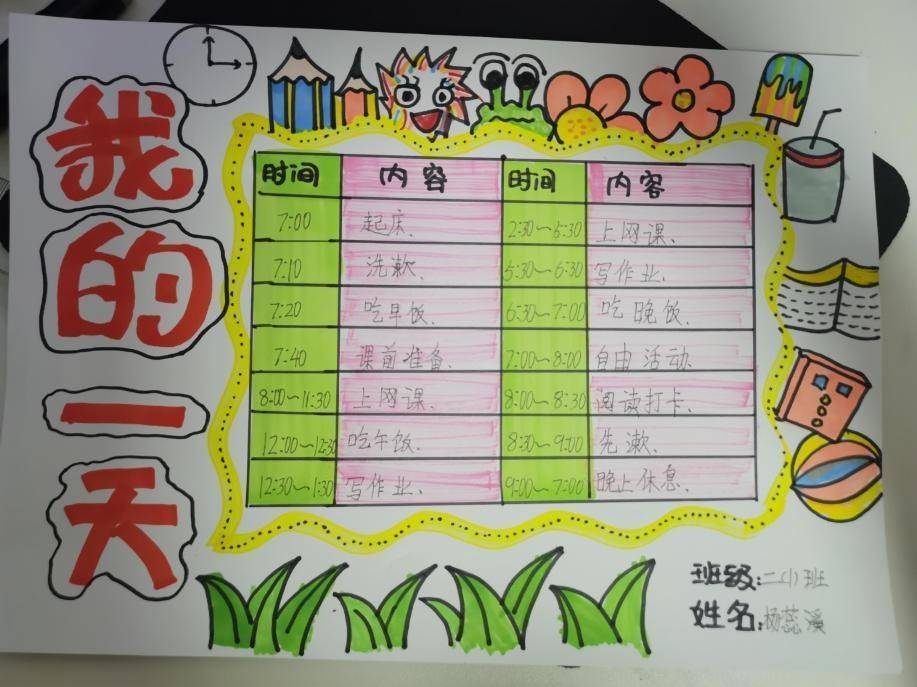 我的一天
时间 内容 时间 内容
7:00 起床、 2:30~5:30 上网课、
7:10 洗漱、 5:30~6:30 写作业、
7:20 吃早饭、 6:30~7:00 吃晚饭、
7:40 课前准备、 7:00~8:00 自由活动、
8:00~11:30 上网课、 8:00~8:30 阅读打卡、
12:00~12:30 吃午饭、 8:30~9:00 先漱、
12:30~1:30 写作业、 9:00~7:00 晚上休息、
班级:二(1)班
姓名:杨蕊溪